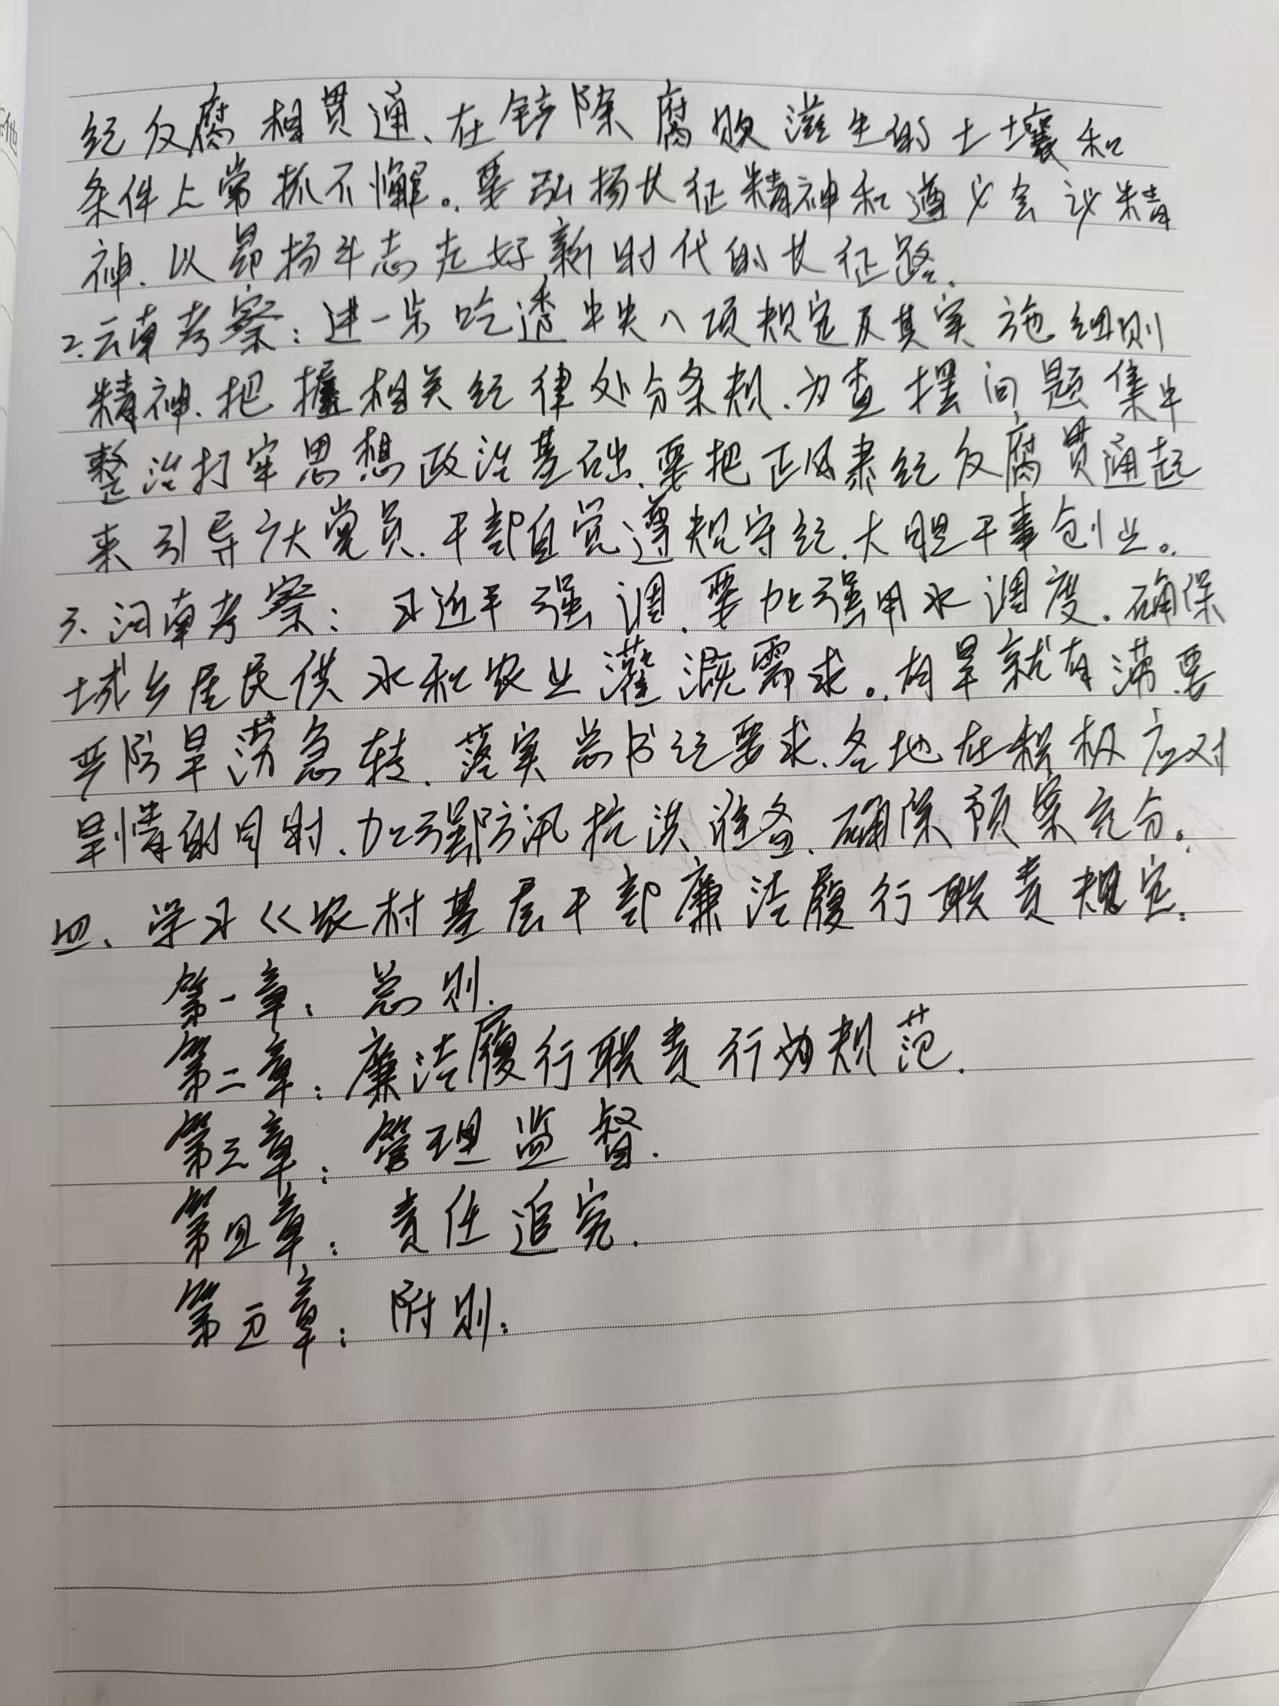 纪反腐相贯通、在铲除腐败滋生的土壤和
条件上常抓不懈。要弘扬长征精神和遵义会议精
神、以昂扬斗志走好新时代的长征路。
2.云南考察:进一步吃透中央八项规定及其实施细则
精神、把握相关纪律处分条规、为查摆问题集中
整治打牢思想政治基础、要把正风肃纪反腐贯通起
来引导广大党员、干部自觉遵规守纪、大胆干事创业。
3.河南考察:习近平强调、要加强用水调度、确保
城乡居民供水和农业灌溉需求。有旱就有涝要
严防旱涝急转、落实总书记要求、各地在积极应对
旱情的同时、加强防汛抗洪准备、确保预案充分。
四、学习《农村基层干部廉洁履行职责规定。
第一章:总则.
第二章:廉洁履行职责行为规范.
第三章:管理监督.
第四章:责任追究.
第五章:附则.